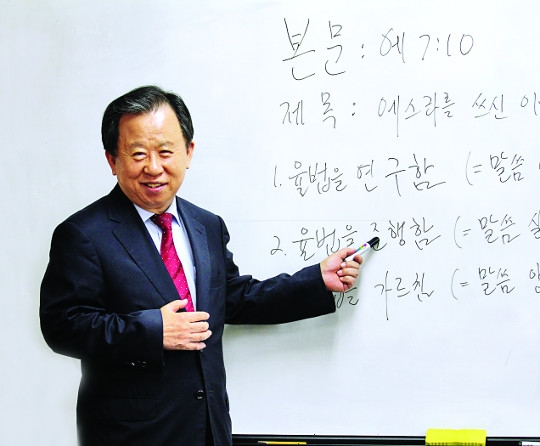 본문 : 에 7:10
제목 : 에스라를 쓰신
1. 율법을 연구함 (= 말씀
2. 율법을 준행함 (= 말씀
가르침 (= 말씀